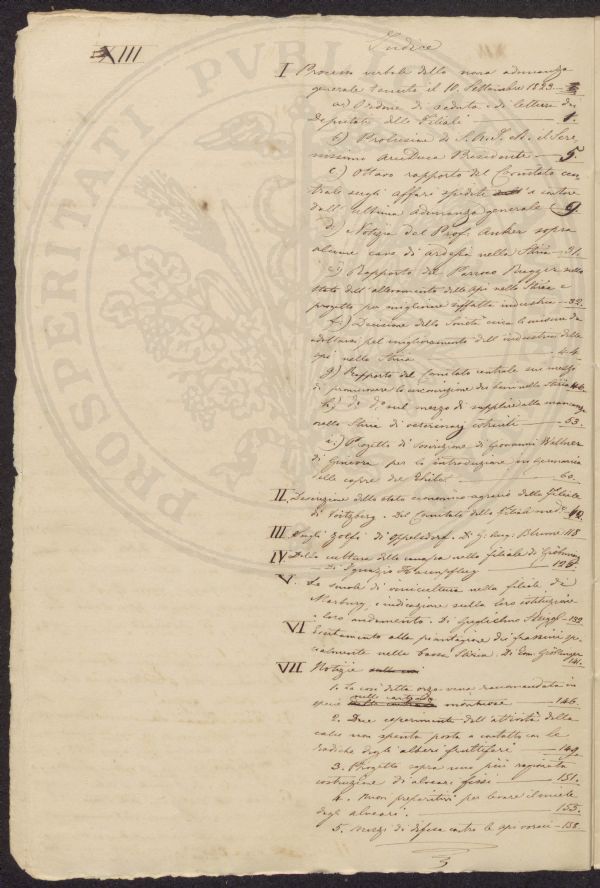 XIII
Indice
I Processo verbale della nona adunanza
generale tenuta il 10. Settembre 1823
a) Ordine di seduta e di letture dei
Deputati delle Filiali — 1.
b) Prolusione di S. A. I. il Sere
nissimo Arciduca Presidente — 5.
c) Ottavo rapporto del Comitato cen
trale sugli affari spediti a contare
dall' ultima adunanza generale — 9.
d) Notizia del Prof. Anker sopra
alcune cave di ardesia nella Stiria — 31.
e) Rapporto del Parroco Brugger sullo
stato dell' allevamento delle api nella Stiria e
progetto per migliorare siffatta industria — 32.
f.) Decisione della Società circa le misure da
adottarsi pel miglioramento dell' industria delle
api nella Stiria — 44.
g) Rapporto del Comitato centrale sui mezzi
di promuovere la circonvisione dei beni nella Stiria 46.
h.) do. do. sul mezzo di supplire alla mancanza
nella Stiria di veterinarj istruiti — 53.
i.) Progetto di Soscrizione di Giovanni Wallner
di Ginevra per la introduzione in Germania
delle capre del Thibet — 60.
II Descrizione dello stato economico-agrario della Filiale
di Voitzberg. Del Comitato della Filiale med.
III Sugli zolfi di Oppelsdorf. Di G. Aug. Blume 118
IV. Della cultura della canapa nella filiale di Gröbming
— Di Ignazio 126.
V. La scuola di vinicultura nella filiale di
Marburg, e indicazione sulla loro istituzione
e loro andamento. Di Guglielmo — 132
VI Eccitamento alla piantagione dei frassini spe
cialmente nella bassa Stiria. Di Em. 141.
VII Notizie
1. La così detta orzo-vena raccomandata in
specie nelle montuose — 146.
2. Due esperimenti dell' attività della
calce non spenta posta a contatto con le
radiche degli alberi fruttiferi — 149.
3. Progetto sopra una più ragionata
costruzione di alveari fissi — 151.
4. Buoni preparativi per levare il miele
dagli alveari. — 153.
5. Mezzi di difesa contro le api voraci — 158.